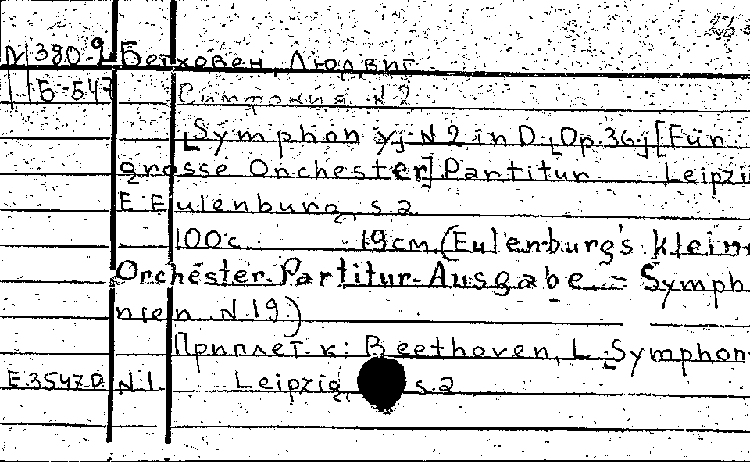 М 380-9 Бетховен, Людвиг.
Б-547 Симфония N 2
[Symphony] N 2 in D. [Op. 36.] [Für
grosse Orchester] Partitur Leipzi
E Eulenburg, s a
100 с. 19 cm. (Eulenburg's kleine
Orchester-Partitur-Ausgabe. - Symph
nien N 19.)
Приплет. к: Beethoven, L. Symphon
E3547D. N 1. Leipzig, s a